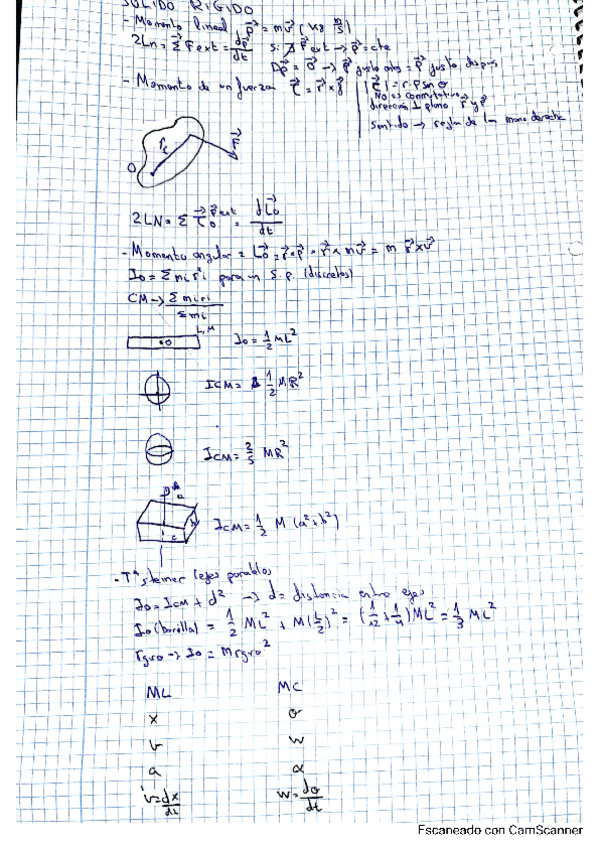 SÓLIDO RÍGIDO
- Momento lineal p⃗ = mv⃗ (kg m/s)
2Ln = Σ F⃗ ext = dp⃗/dt  si ∄ F⃗ ext → p⃗ = cte
Δp⃗ = 0⃗ → p⃗ justo antes = p⃗ justo después
- Momento de un fuerza τ⃗ = r⃗ × f⃗
|τ⃗| = r·F sen θ
No es conmutativo
dirección ⊥ plano r⃗ y F⃗
sentido → regla de la mano derecha
O r⃗i F⃗
2LN = Σ τ⃗o F⃗ext = dL⃗o/dt
- Momento angular = L⃗o = r⃗ × p⃗ = r⃗ × mv⃗ = m r⃗ × v⃗
Io = Σ mi r²i para un S.p. (discretos)
CM → Σ mi ri / Σ mi
L, M
O Io = 1/2 ML²
ICM = 1/2 MR²
ICM = 2/5 MR²
a b c ICM = 1/2 M (a² + b²)
- Tª steiner (ejes paralelos)
Io = ICM + d² → d = distancia entre ejes
Io (barilla) = 1/2 ML² + M(L/2)² = (1/12 + 1/4) ML² = 1/3 ML²
rgiro → Io = Mrgiro²
ML MC
x θ
v w
a α
v = dx/dt w = dθ/dt
Escaneado con CamScanner